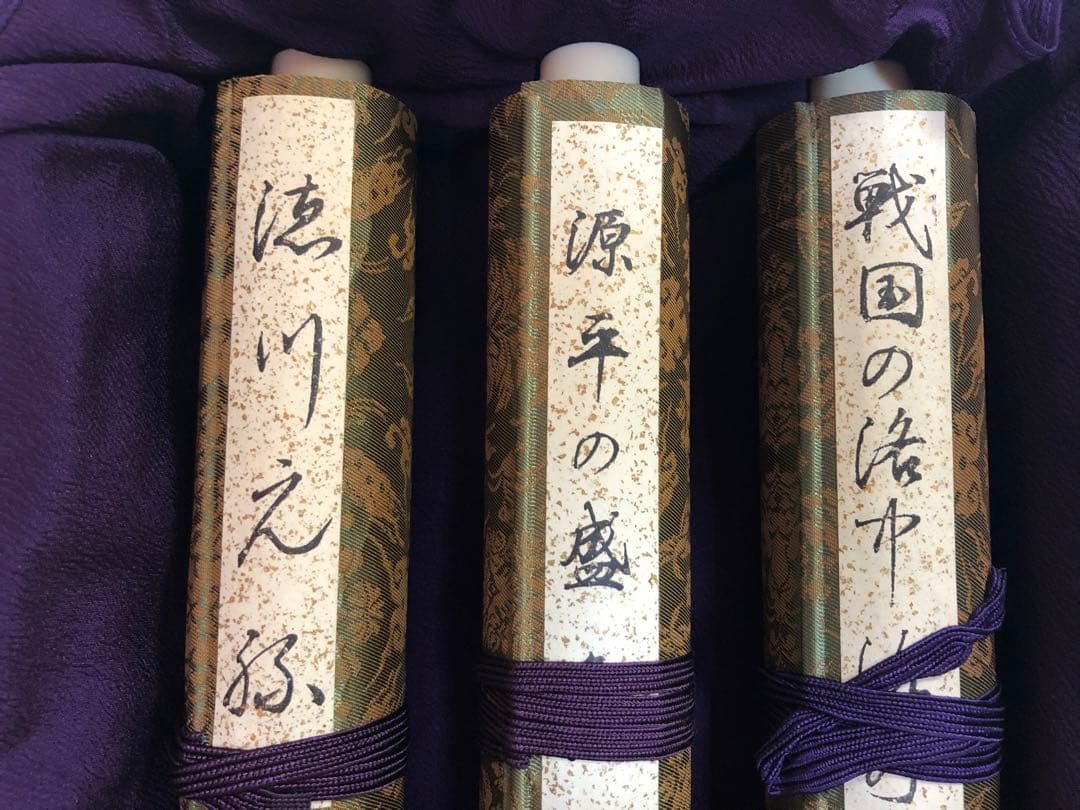 戦国の洛中
源平の盛
徳川元禄